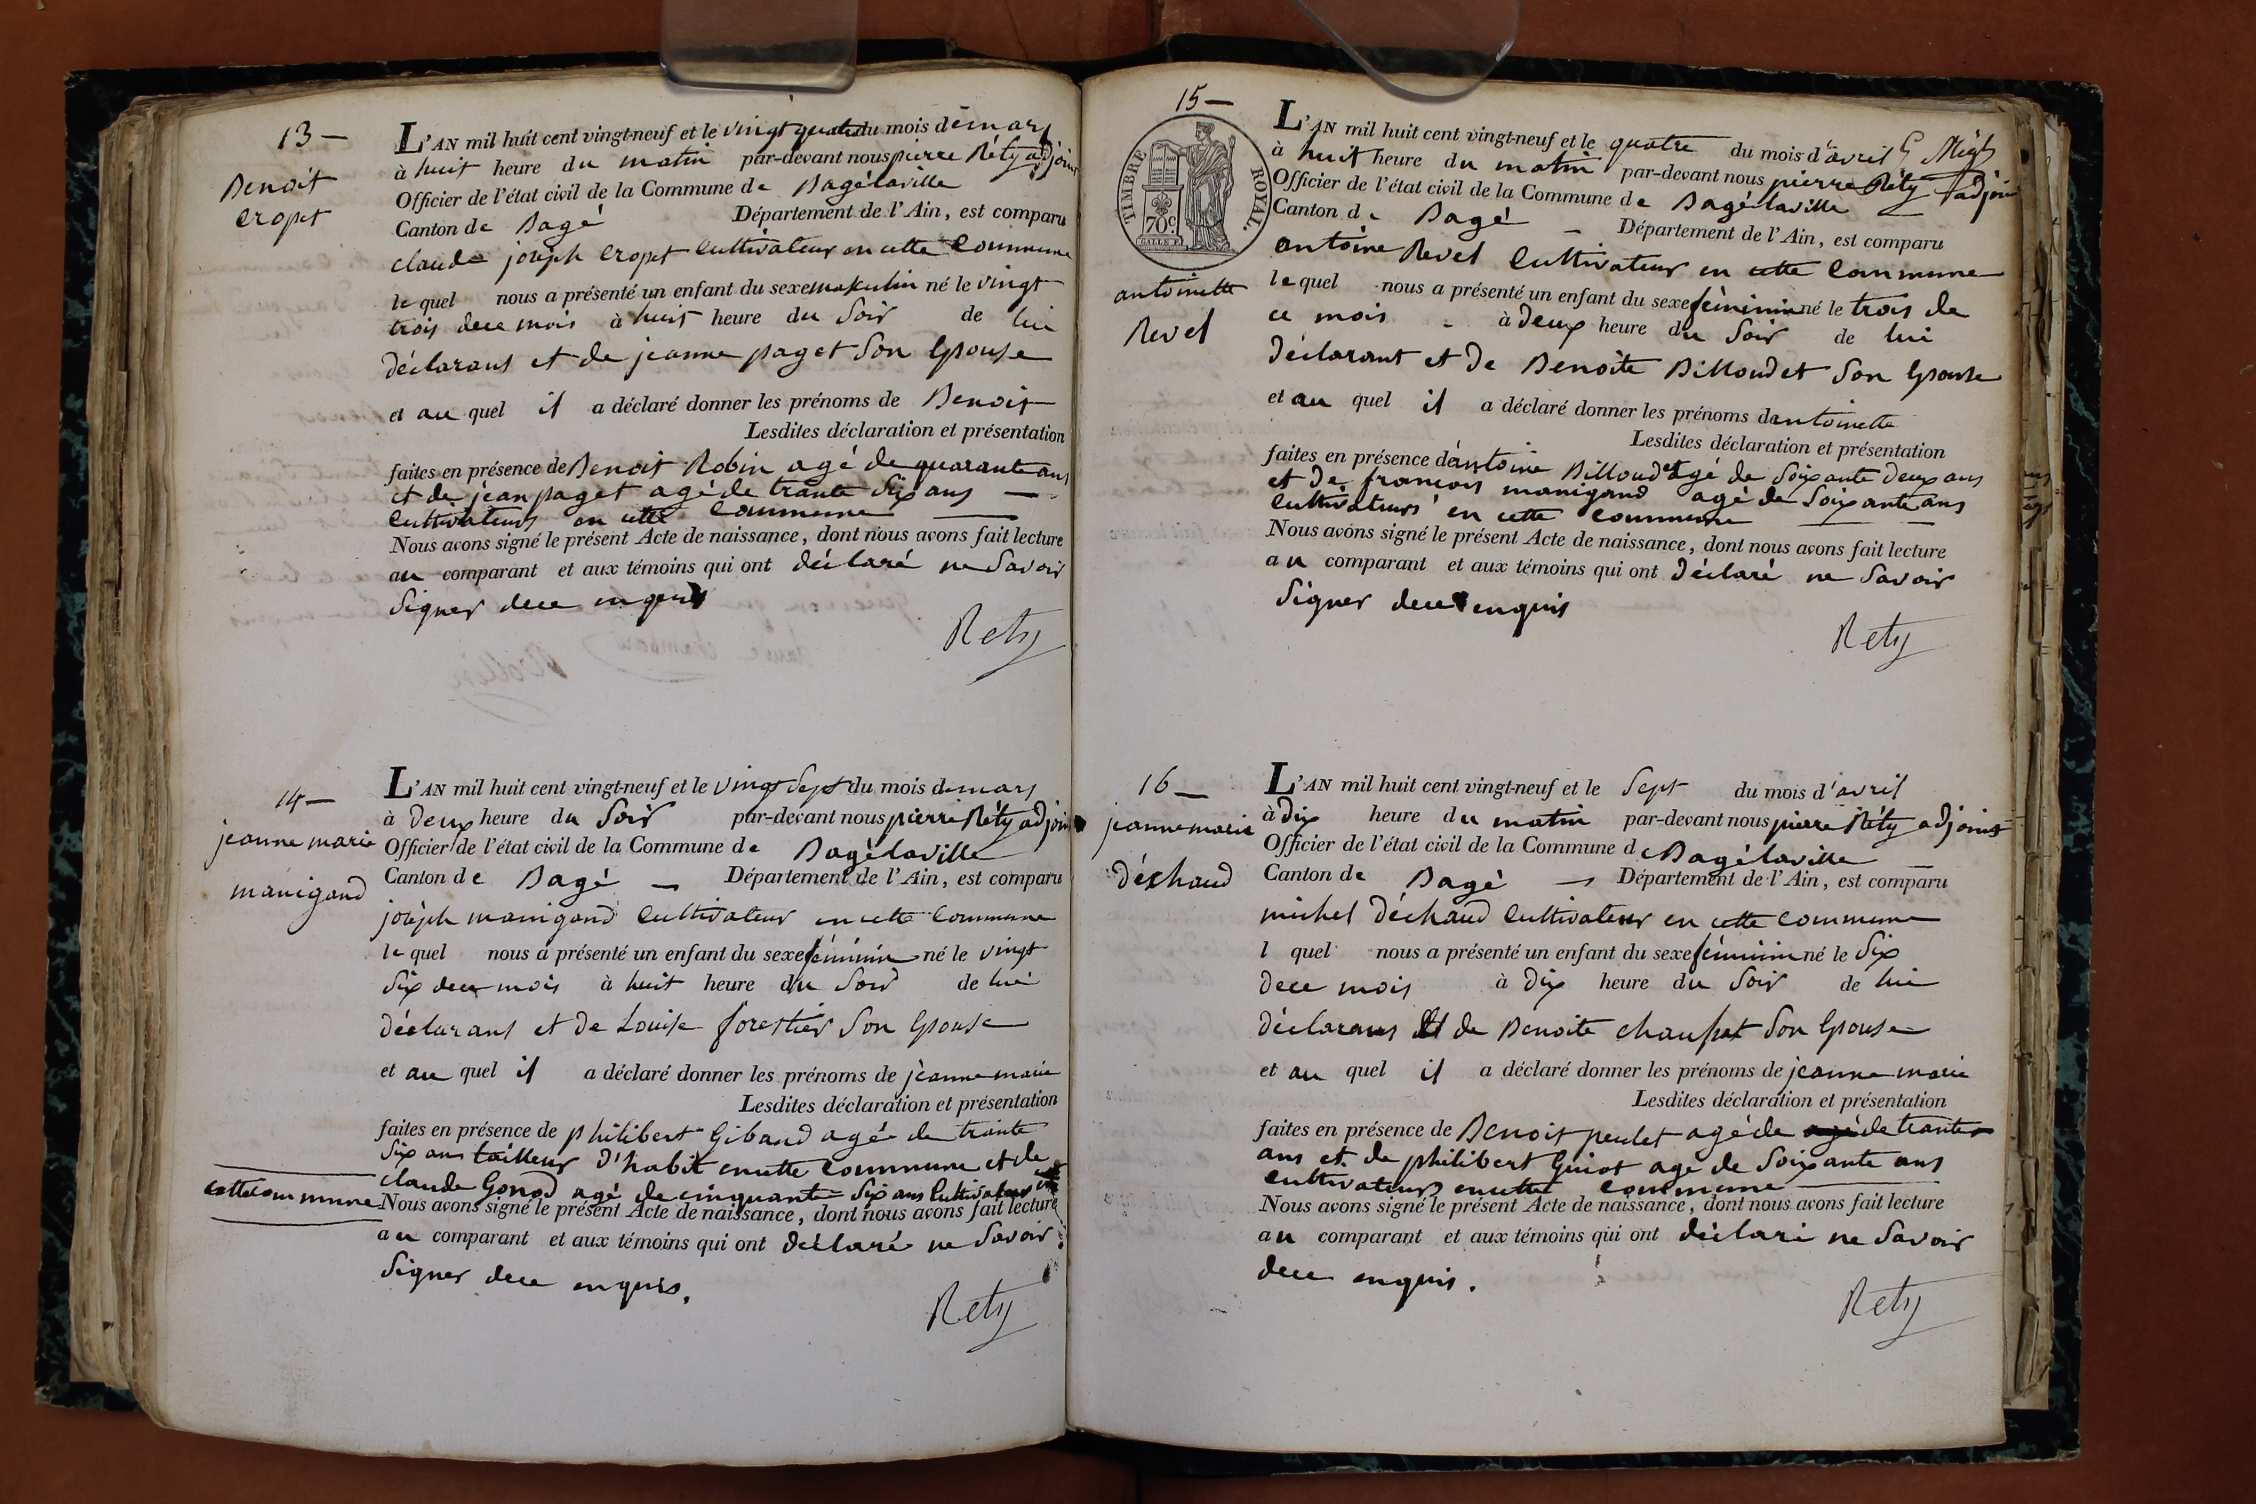 13 —
Benoit
cropet
L'AN mil huit cent vingt-neuf et le vingt quatre du mois de mars
à huit heure du matin par-devant nous pierre Réty adjoint
Officier de l'état civil de la Commune de Bagélaville
Canton de Bagé Département de l'Ain, est comparu
claude joseph cropet cultivateur en cette commune
le quel nous a présenté un enfant du sexe maskulin né le vingt
trois dece mois à huit heure du soir de lui
déclarant et de jeanne paget son épouse
et au quel il a déclaré donner les prénoms de Benoit
Lesdites déclaration et présentation
faites en présence de Benoit Robin agé de quarante ans
et de jean paget agé de trante six ans —
cultivateurs en cette commune —
Nous avons signé le présent Acte de naissance, dont nous avons fait lecture
au comparant et aux témoins qui ont déclaré ne savoir
signer dece enquis
Rety
14 —
jeanne marie
manigand
L'AN mil huit cent vingt-neuf et le vingt sept du mois de mars
à deux heure du soir par-devant nous pierre Réty adjoint
Officier de l'état civil de la Commune de Bagélaville
Canton de Bagé — Département de l'Ain, est comparu
joséph manigand cultivateur en cette commune
le quel nous a présenté un enfant du sexe féminin né le vingt
six dece mois à huit heure du soir de lui
déclarant et de Louise forestier son épouse
et au quel il a déclaré donner les prénoms de jeanne marie
Lesdites déclaration et présentation
faites en présence de philibert Giband agé de trante
six ans tailleur d'habit en cette commune et de
claude Gonod agé de cinquante six ans cultivateur en
cette commune
Nous avons signé le présent Acte de naissance, dont nous avons fait lecture
au comparant et aux témoins qui ont déclaré ne savoir
signer dece enquis.
Rety
15 —
TIMBRE ROYAL.
70c
antoinette
Revel
L'AN mil huit cent vingt-neuf et le quatre du mois d'avril
à huit heure du matin par-devant nous pierre Réty adjoint
Officier de l'état civil de la Commune de Bagélaville —
Canton de Bagé — Département de l'Ain, est comparu
antoine Revel cultivateur en cette commune
le quel nous a présenté un enfant du sexe féminin né le trois de
ce mois à deux heure du soir de lui
déclarant et de Benoite Billoudet son épouse
et au quel il a déclaré donner les prénoms dantoinette
Lesdites déclaration et présentation
faites en présence d'antoine Billoudet agé de soixante deux ans
et de françois manigand agé de soixante ans
cultivateurs en cette commune — —
Nous avons signé le présent Acte de naissance, dont nous avons fait lecture
au comparant et aux témoins qui ont déclaré ne savoir
signer dece enquis
Rety
16 —
jeanne marie
déchaud
L'AN mil huit cent vingt-neuf et le sept du mois d'avril
à dix heure du matin par-devant nous pierre Réty adjoint
Officier de l'état civil de la Commune de Bagélaville
Canton de Bagé — Département de l'Ain, est comparu
michel déchaud cultivateur en cette commune
l quel nous a présenté un enfant du sexe féminin né le six
dece mois à dix heure du soir de lui
déclarant et de Benoite chaufpet son épouse
et au quel il a déclaré donner les prénoms de jeanne marie
Lesdites déclaration et présentation
faites en présence de Benoit peulet agé de agé de trante
ans et de philibert Guiot agé de soixante ans
cultivateurs en cette commune —
Nous avons signé le présent Acte de naissance, dont nous avons fait lecture
au comparant et aux témoins qui ont déclaré ne savoir
dece enquis.
Rety